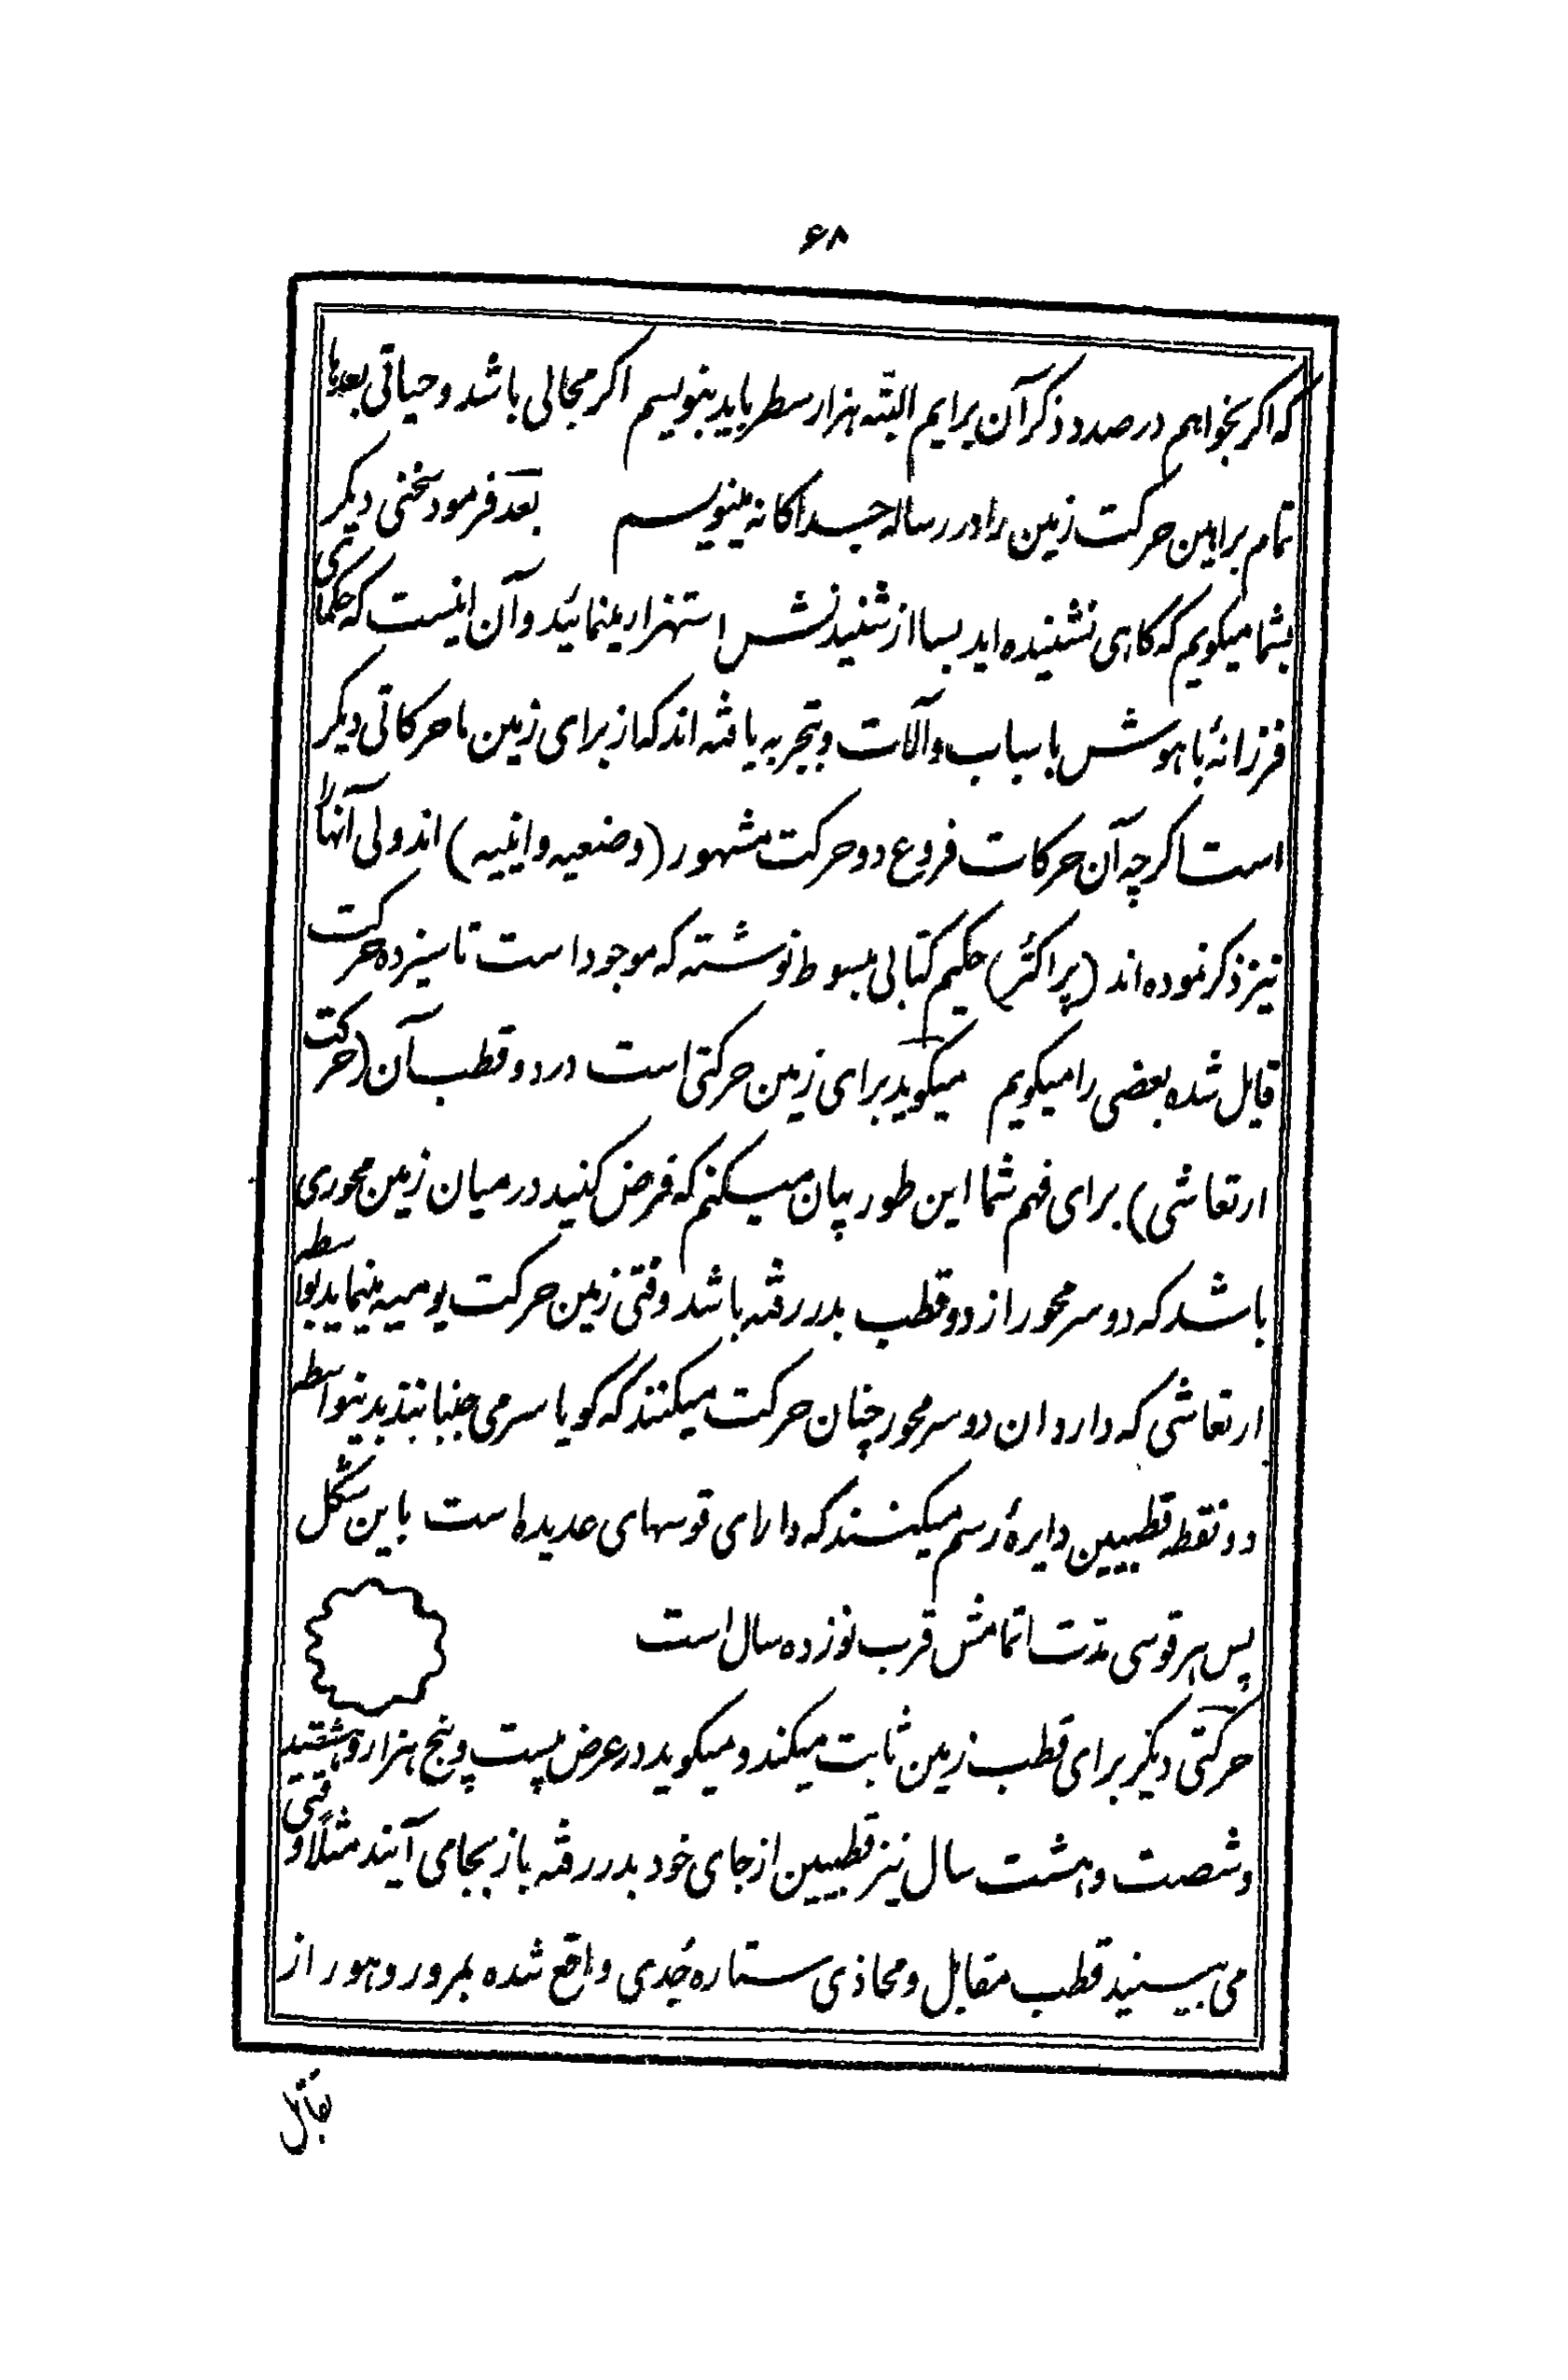 ۶۸
که اکر بخواهم درصدد ذکر آن برایم البتّه هزار سطر باید بنویسم اکر مجالی باشد و حیاتی بعدها
تمام براهین حرکت زمین را در رساله جداکانه مینویسم بعد فرمود سخنی دیکر
بشما میکویم که کاهی نشنیده اید بسا از شنیدنش استهزا مینمائید و آن اینست که حکمای
فرزانهٔ باهوش باسباب و آلات و تجربه یافته اند که از برای زمین ما حرکاتی دیکر
است اکرچه آن حرکات فروع دو حرکت مشهور (وضعیه و اینیه) اند ولی آنها را
نیز ذکر نموده اند (پراکتر) حکیم کتابی مبسوط نوشته که موجود است تا سیزده حرکت
قایل شده بعضی را میکویم میکوید برای زمین حرکتی است در دو قطب آن (حرکت
ارتعاشی) برای فهم شما این طور بیان میکنم که فرض کنید در میان زمین محوری
باشد که دو سر محور از دو قطب بدر رفته باشد وقتی زمین حرکت یومیه مینماید بواسطه
ارتعاشی که دارد ان دو سر محور چنان حرکت میکنند که کویا سر می جنبانند بدینواسطه
دو نقطه قطبین دایرهٔ رسم میکنند که دارای قوسهای عدیده است باین شکل
پس هر قوسی مدّت اتمامش قرب نوزده سال است
حرکتی دیکر برای قطب زمین ثابت میکند و میکوید در عرض بیست و پنج هزار و هشتصد
و شصت و هشت سال نیز قطبین از جای خود بدر رفته باز بجا می آیند مثلًا وقتی
می بینید قطب مقابل و محاذی ستاره جُدی واقع شده بمرور دهور از
مقابل